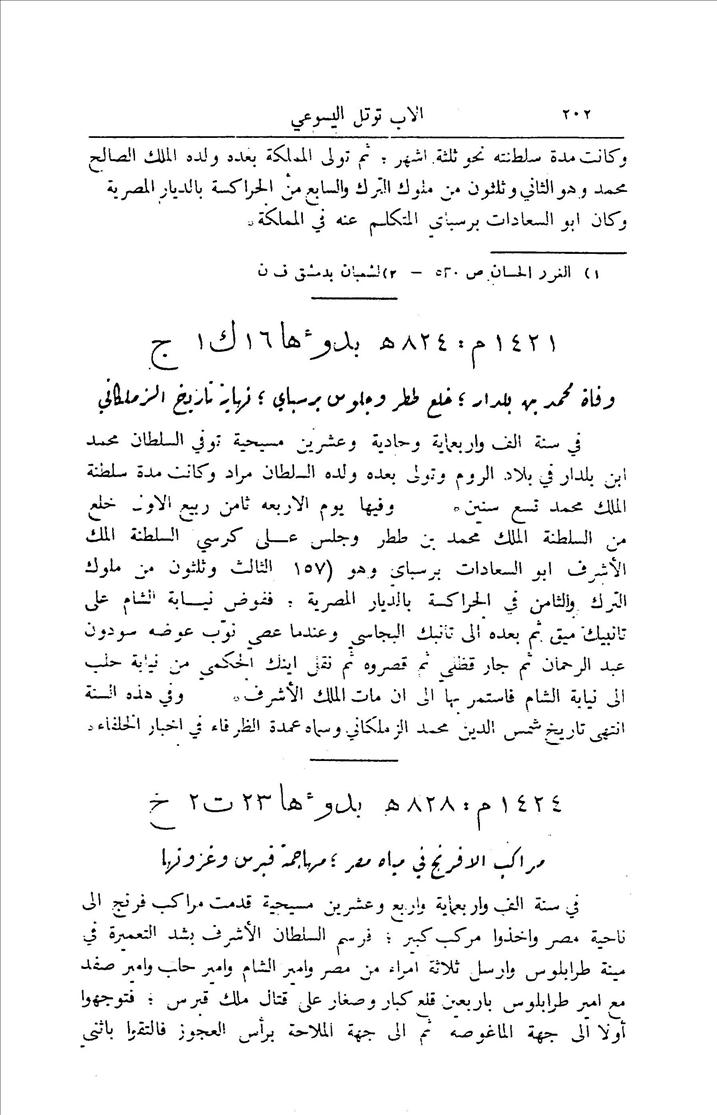 ٢٠٢ الاب توتل اليسوعي
وكانت مدة سلطنته نحو ثلثة اشهر ؛ ثم تولى المملكة بعده ولده الملك الصالح
محمد وهو الثاني وثلثون من ملوك الترك والسابع من الجراكسة بالديار المصرية
وكان ابو السعادات برسباي المتكلم عنه في المملكة .
١) الغرر الحسان ص ٥٢٠ – ٢) لشعبان بدمشق ف ن
١٤٢١ م : ٨٢٤ ه بدوءها ١٦ ك ١ ج
وفاة محمد بن بلدار ؛ خلع ططر وجلوس برسباي ؛ نهاية تاريخ الزملكاني
في سنة الف واربعماية وحادية وعشرين مسيحية توفي السلطان محمد
ابن بلدار في بلاد الروم وتولى بعده ولده السلطان مراد وكانت مدة سلطنة
الملك محمد تسع سنين . وفيها يوم الاربعه ثامن ربيع الاول خلع
من السلطنة الملك محمد بن ططر وجلس على كرسي السلطنة الملك
الأشرف ابو السعادات برسباي وهو (١٥٧ الثالث وثلثون من ملوك
الترك والثامن في الجراكسة بالديار المصرية ؛ ففوض نيابة الشام على
تانبيك ميق ثم بعده الى تانبك البجاسي وعندما عصي نوّب عوضه سودون
عبد الرحمان ثم جار قطلي ثم قصروه ثم نقل اينك الحكمي من نيابة حلب
الى نيابة الشام فاستمر بها الى ان مات الملك الأشرف . وفي هذه السنة
انتهى تاريخ شمس الدين محمد الزملكاني وسماه عمدة الظرفاء في اخبار الخلفاء .
١٤٢٤ م : ٨٢٨ ه بدوءها ٢٣ ت ٢ خ
مراكب الافرنج في مياه مصر ؛ مهاجمة قبرس وغزوتها
في سنة الف واربعماية واربع وعشرين مسيحية قدمت مراكب فرنج الى
ناحية مصر واخذوا مركب كبير ؛ فرسم السلطان الأشرف بشد التعميرة في
مينة طرابلوس وارسل ثلاثة امراء من مصر وامير الشام وامير حلب وامير صفد
مع امير طرابلوس باربعين قلع كبار وصغار على قتال ملك قبرس ؛ فتوجهوا
أولا الى جهة الماغوصه ثم الى جهة الملاحة برأس العجوز فالتقوا باثني